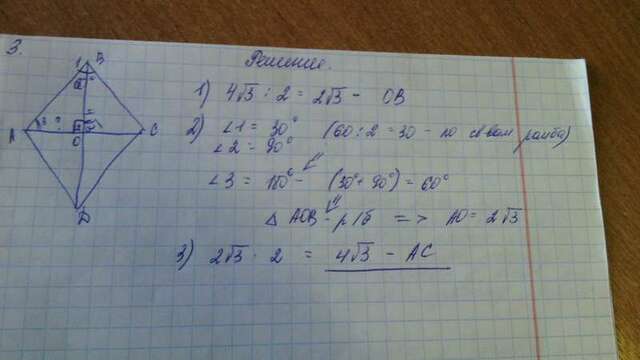 3.
Решение.
B
A
C
O
D
1) 4√3 : 2 = 2√3 - OB
2) ∠1 = 30° (60 : 2 = 30 - по св-вам ромба)
∠2 = 90°
∠3 = 180° - (30° + 90°) = 60°
△ AOB - р/б => AO = 2√3
3) 2√3 · 2 = 4√3 - AC